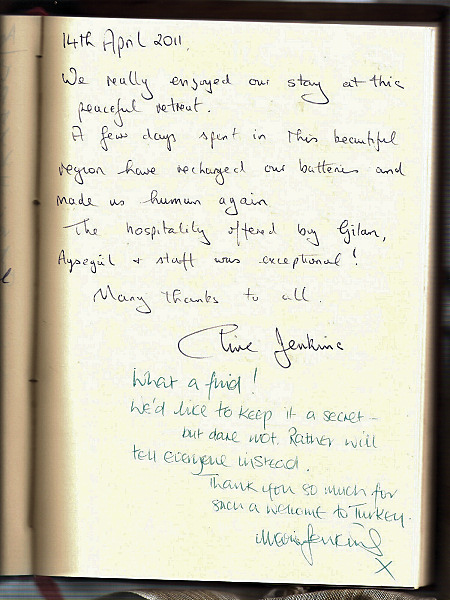 14th April 2011.
We really enjoyed our stay at this
peaceful retreat.
A few days spent in this beautiful
region have recharged our batteries and
made us human again
The hospitality offered by Gilan,
Aysegül & staff was exceptional!
Many thanks to all.
Clive Jenkins
What a find!
We'd like to keep it a secret -
but dare not. Rather will
tell everyone instead.
Thank you so much for
such a welcome to Turkey.
Jenkins
X